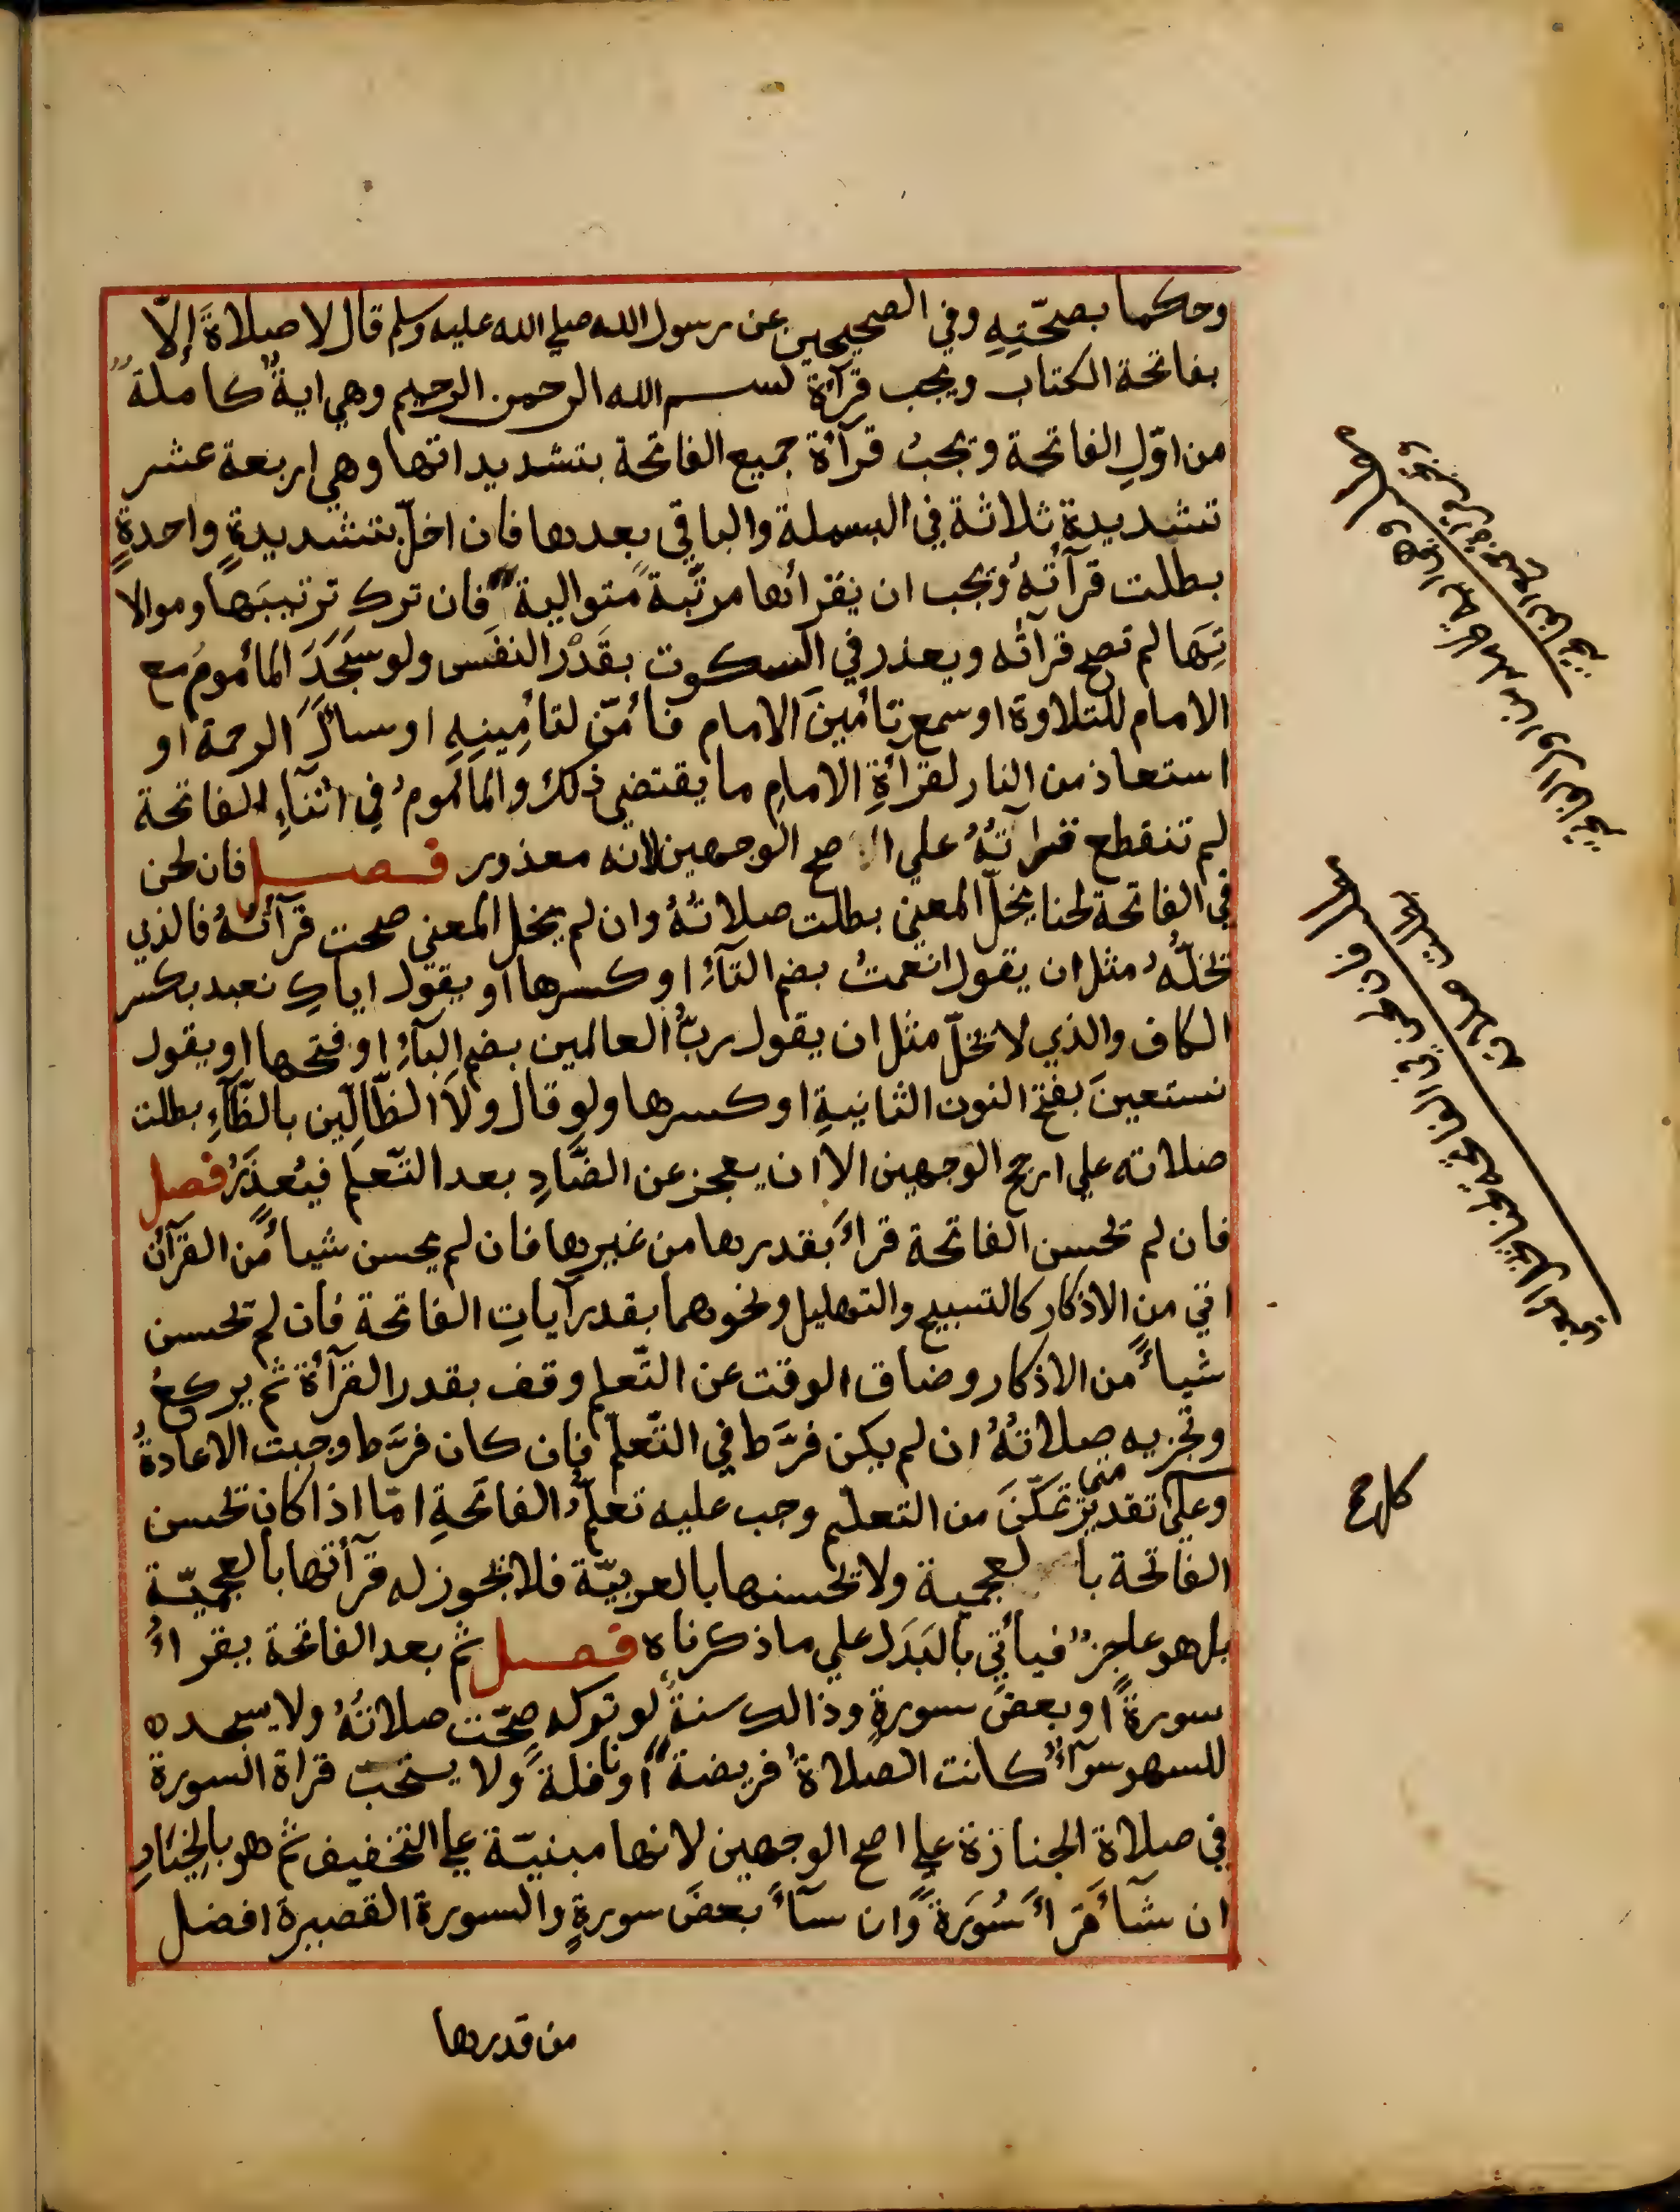 وحكما بصحّتِهِ وفي الصحيحين عن رسول الله صلي الله عليه وسلم قال لا صلاةَ إلّا
بفاتحة الكتاب ويجب قرآءة بسم الله الرحمن الرحيم وهي ايةٌ كاملةٌ
من اوّلِ الفاتحة ويجبُ قرآءة جميع الفاتحة بتشديداتها وهي اربعة عشر
تشديدة ثلاثة في البسملة والباقي بعدها فان اخلّ بتشديدةٍ واحدةٍ
بطلت قرآءتهُ ويجب ان يقرأها مرتّبةً متواليةً فان ترك ترتيبَها وموالا
تِهَا لم تصح قرآءته ويعذر في السكوت بقَدْر النفَس ولو سَجَدَ المأمومُ مع
الامام للتلاوة او سمع تأمينَ الامام فأمّن لتأمِينِهِ او سألَ الرحمة او
استعاذ من النار لقرآءةِ الامامِ ما يقتضي ذلك والمأمومُ في اثنآءِ الفاتحة
لم تنقطع قرآءتهُ علي اصح الوجهين لانه معذور فصل فان لحن
في الفاتحة لحنا يخلّ المعني بطلت صلاتهُ وان لم يخل المعني صحت قرآءتهُ فالذي
يخلّهُ مثل ان يقول انعمتُ بضم التآء او كسرها او يقول اياكِ نعبد بكسر
الكاف والذي لا يخلّ مثل ان يقول ربُّ العالمين بضم البآءِ او فتحها او يقول
نستعينَ بفتح النون الثانيةِ او كسرها ولو قال ولَا الظّالّين بالظّآءِ بطلت
صلاته علي ارجح الوجهين الا ان يعجز عن الضَّادِ بعد التّعلم فيُعذَرُ فصل
فان لم يحسن الفاتحة قرأَ بقدرها من غيرها فان لم يحسن شيأً من القرآن
اتي من الاذكار كالتسبيح والتهليل ونحوهما بقدر آياتِ الفاتحة فان لم يحسن
شيأً من الاذكار وضاق الوقت عن التّعلم وقف بقدر القرآءة ثم يركعُ
وتجزيه صلاتهُ ان لم يكن فرَّط في التّعلّم فان كان فرَّط وجبت الاعادةُ
وعلي تقديرٍ متي تمكّنَ من التعلّم وجب عليه تعلّمُ الفاتحةِ امّا اذا كان يحسن
الفاتحة بالعجمية ولا يحسنها بالعربيّة فلا يجوز له قرآءتها بالعجميّة
بل هو عاجزٌ فيأتي بالبَدَل علي ما ذكرناه فصل ثم بعد الفاتحة يقرأُ
سورةً او بعضَ سورةٍ وذالك سنةٌ لو تركه صحّت صلاتهُ ولا يسجده
للسهو سوآءٌ كانت الصلاةُ فريضةً او نافلةً ولا يستحبّ قراة السورة
في صلاة الجنازة علي اصح الوجهين لانها مبنيّة علي التخفيف ثم هو بالخيارِ
ان شآءَ قرأَ سُورَةً وان شآءَ بعضَ سورةٍ والسورة القصيرة افضل
من قدرها